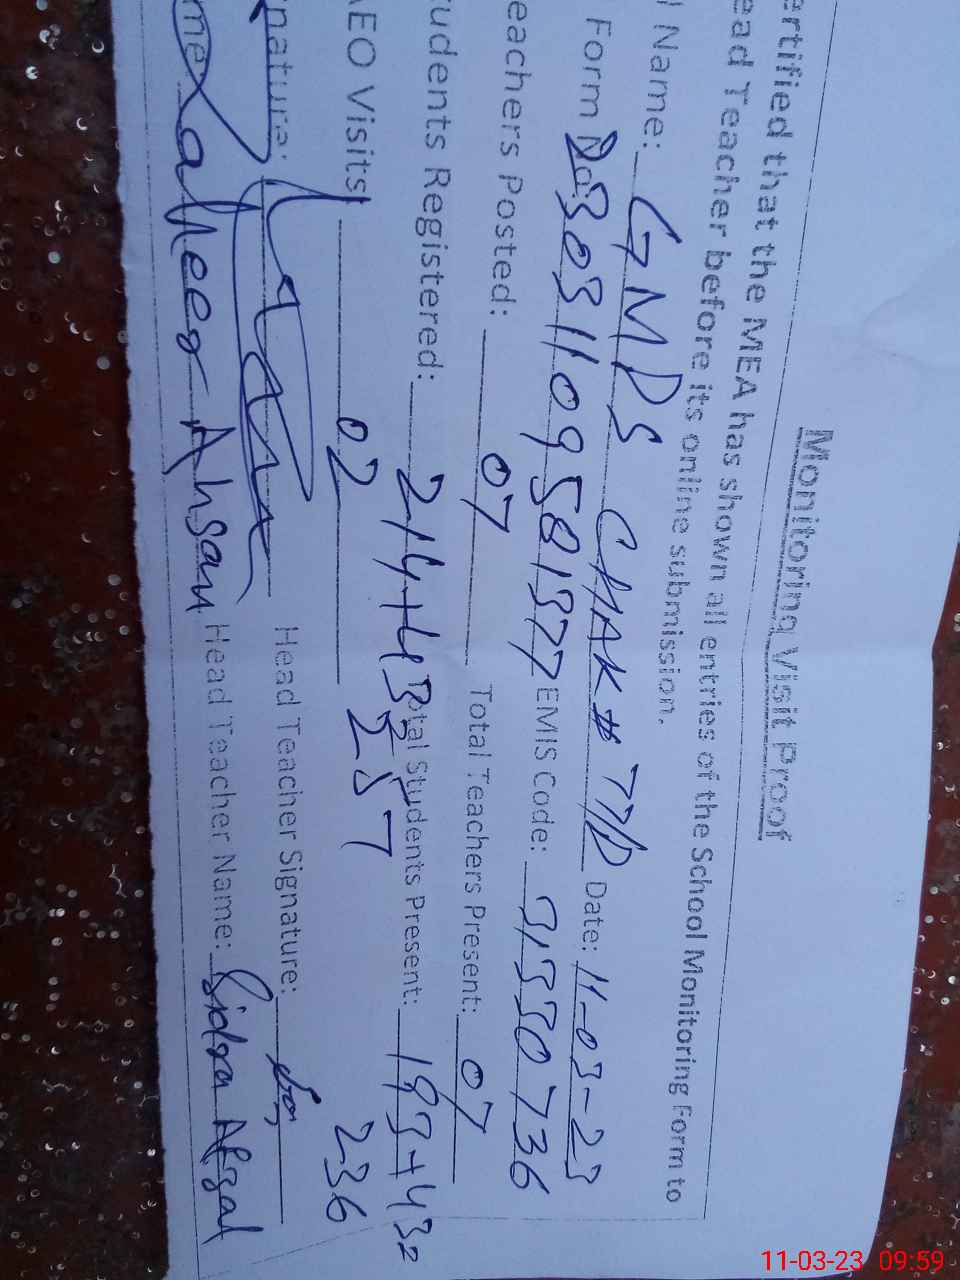 Monitoring Visit Proof
ertified that the MEA has shown all entries of the School Monitoring Form to
ead Teacher before its online submission.
l Name: GMPS CHAK # 77/D Date: 11-03-23
Form No: EMIS Code: 31330736
eachers Posted: 07 Total Teachers Present: 07
udents Registered: 214+43= 257 Total Students Present: 193+43= 236
AEO Visits: 02
nature: Head Teacher Signature:
me: Zaheer Ahsan Head Teacher Name: Sidra Afzal
11-03-23 09:59